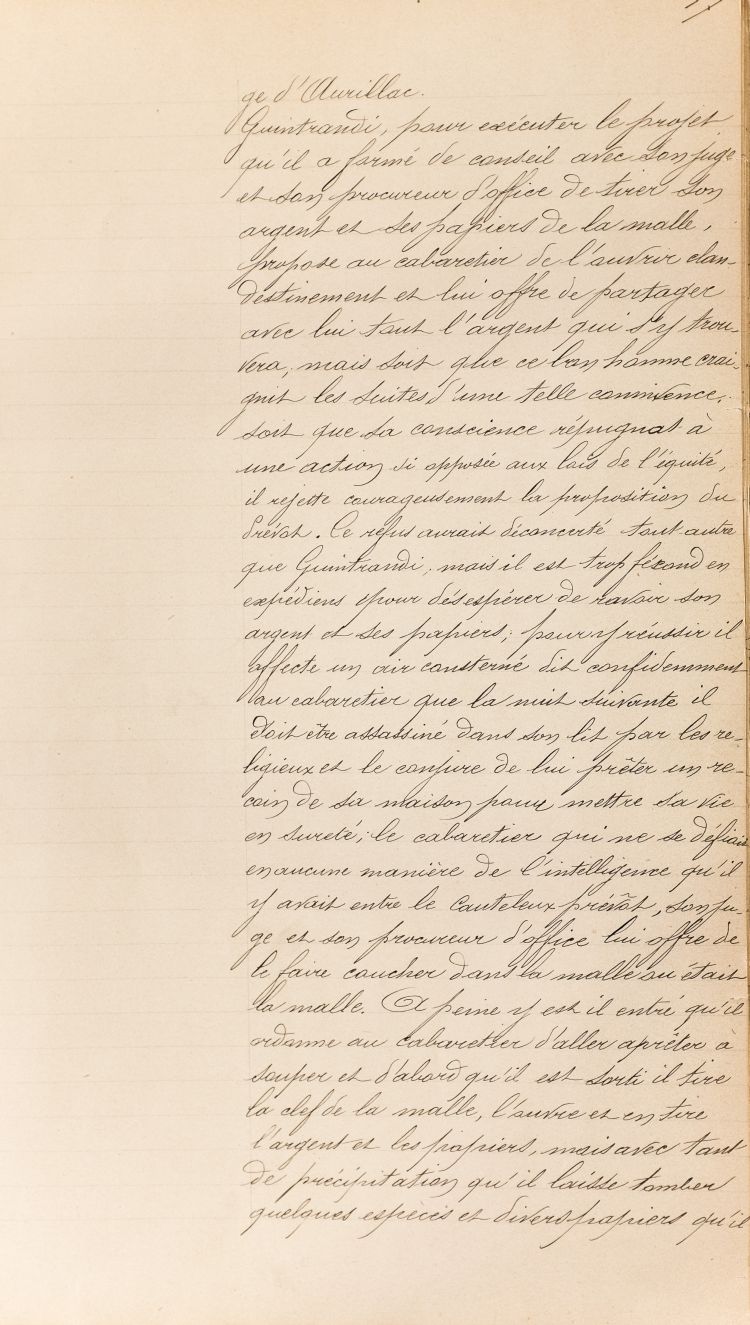 ge d'Aurillac.
Guintrandi, pour exécuter le projet
qu'il a formé de conseil avec son juge
et son procureur d'office de tirer son
argent et ses papiers de la malle,
propose au cabaretier de l'ouvrir clan-
destinement et lui offre de partager
avec lui tout l'argent qui s'y trou-
vera, mais soit que ce bon homme crai-
gnit les suites d'une telle connivence,
soit que sa conscience répugnat à
une action si opposée aux lois de l'équité,
il rejette courageusement la proposition du
Prévot. Ce refus aurait déconcerté tout autre
que Guintrandi, mais il est trop fécond en
expédiens pour désespérer de ravoir son
argent et ses papiers; pour y réussir il
affecte un air consterné dit confidemment
au cabaretier que la nuit suivante il
doit être assassiné dans son lit par les re-
ligieux et le conjure de lui prêter un re-
coin de sa maison pour mettre sa vie
en sureté; le cabaretier qui ne se défiait
en aucune manière de l'intelligence qu'il
y avait entre le cauteleux prévôt, son ju-
ge et son procureur d'office lui offre de
le faire coucher dans la malle où était
la malle. A peine y est il entré qu'il
ordonne au cabaretier d'aller aprêter à
souper et d'abord qu'il est sorti il tire
la clef de la malle, l'ouvre et en tire
l'argent et les papiers, mais avec tant
de précipitation qu'il laisse tomber
quelques espèces et divers papiers qu'il